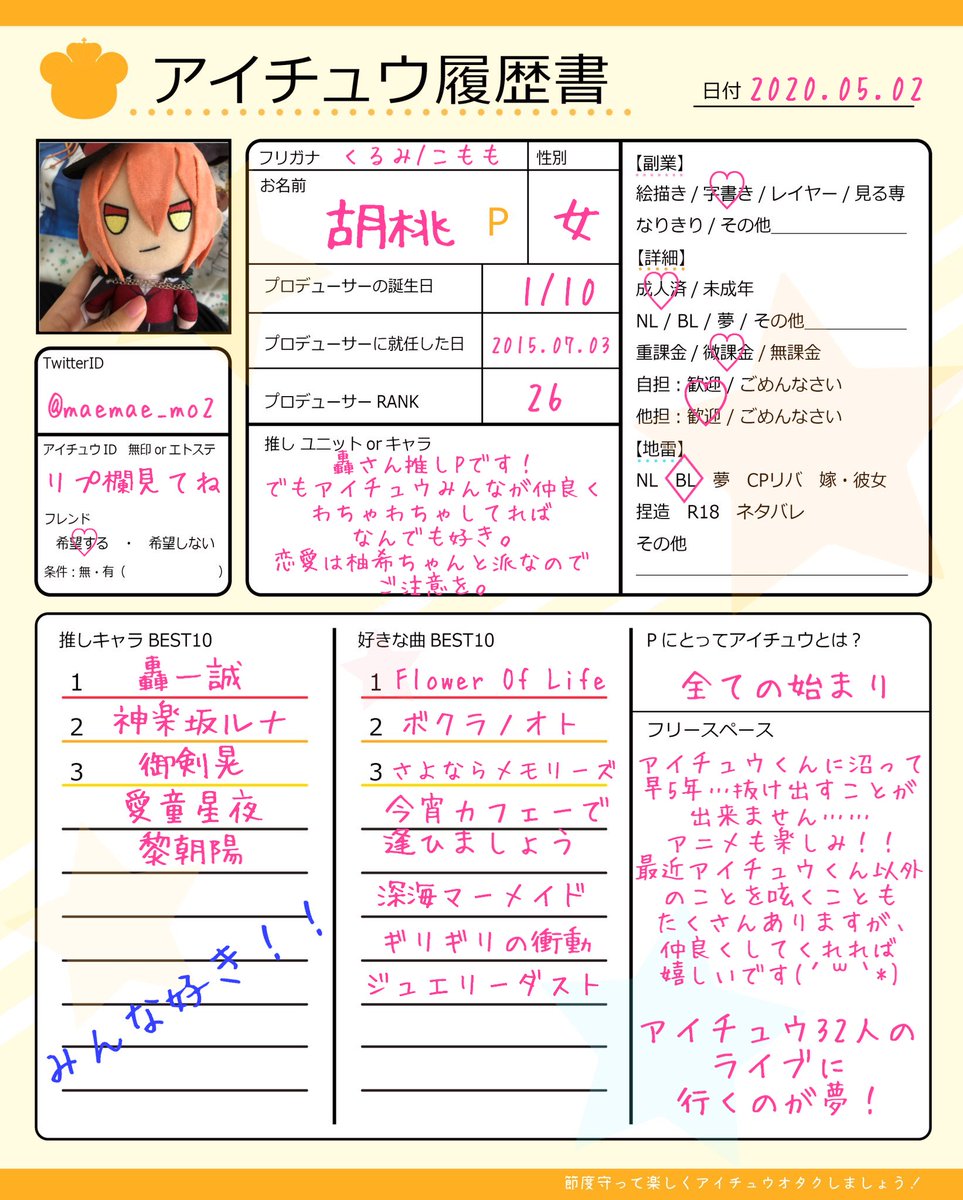 アイチュウ履歴書
日付 2020.05.02
フリガナ くるみ/こもも
性別
お名前
胡桃 P
女
プロデューサーの誕生日 1/10
プロデューサーに就任した日 2015.07.03
プロデューサー RANK 26
推し ユニット or キャラ
轟さん推しPです!
でもアイチュウみんなが仲良く
わちゃわちゃしてれば
なんでも好き。
恋愛は柚希ちゃんと派なので
ご注意を。
TwitterID
@maemae_mo2
アイチュウID 無印 or エトステ
リプ欄見てね
フレンド
希望する ・ 希望しない
条件:無・有( )
【副業】
絵描き / 字書き / レイヤー / 見る専
なりきり / その他
【詳細】
成人済 / 未成年
NL / BL / 夢 / その他
重課金 / 微課金 / 無課金
自担:歓迎 / ごめんなさい
他担:歓迎 / ごめんなさい
【地雷】
NL BL 夢 CPリバ 嫁・彼女
捏造 R18 ネタバレ
その他
推しキャラ BEST10
1 轟一誠
2 神楽坂ルナ
3 御剣晃
愛童星夜
黎朝陽
みんな好き!!
好きな曲 BEST10
1 Flower Of Life
2 ボクラノオト
3 さよならメモリーズ
今宵カフェーで
逢ひましょう
深海マーメイド
ギリギリの衝動
ジュエリーダスト
Pにとってアイチュウとは?
全ての始まり
フリースペース
アイチュウくんに沼って
早5年…抜け出すことが
出来ません……
アニメも楽しみ!!
最近アイチュウくん以外
のことを呟くことも
たくさんありますが、
仲良くしてくれれば
嬉しいです(´꒳`*)
アイチュウ32人の
ライブに
行くのが夢!
節度守って楽しくアイチュウオタクしましょう!